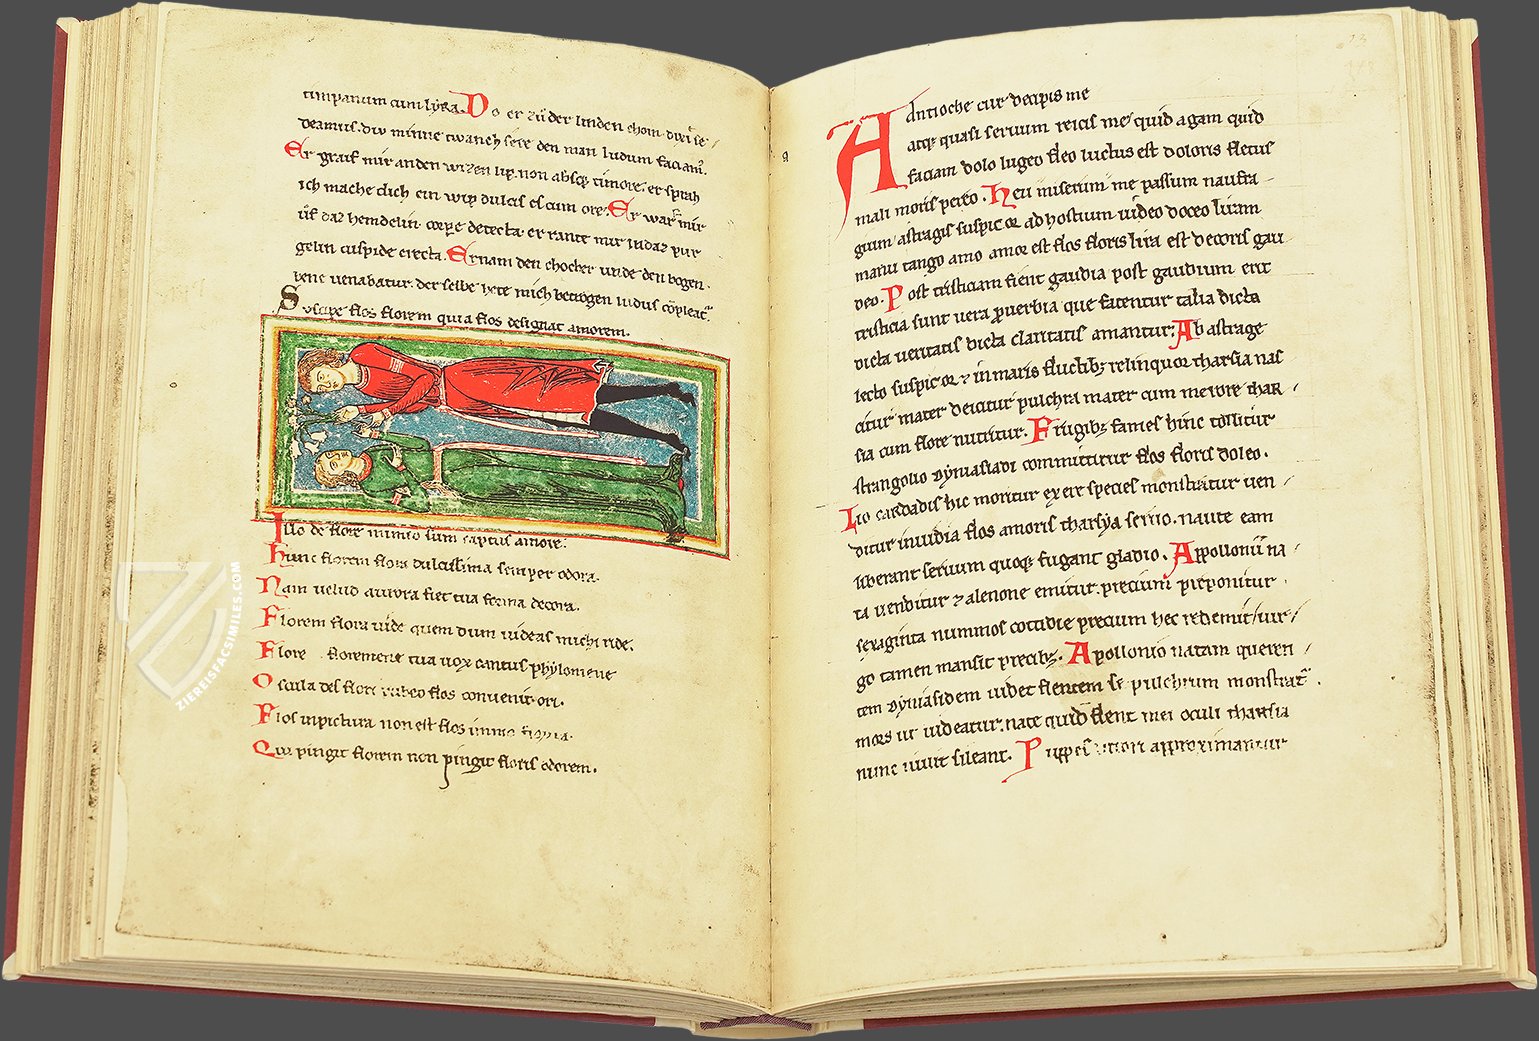 timpanum cum lyra. Do er zů der linden chom dixit se
deamus. div minne twanch sere den man ludum faciam.
Er graif mir an den wizen lip. non absq; timore. er sprah
ich mache dich ein wip dulcis es cum ore. Er warf mir
ůf daz hemdelin corpe detecta. er rante mir in daz pur
gelin cuspide erecta. Er nam den chocher unde den bogen.
bene uenabatur. der selbe hete mich betrogen ludus cōpleat.
Suscipe flos florem quia flos designat amorem.
Illo de flore nimio sum captus amore.
Hunc florem flora dulcissima semper odora.
Nam uelud aurora fiet tua forma decora.
Florem flora uide quem dum uideas michi ride.
Flore tua uox cantus phylomene
Oscula des flori rubeo flos conuenit ori.
Flos in pictura non est flos immo figura.
Qui pingit florem non pingit floris odorem.
ZIEREISFACSIMILES.COM
Antioche cur decipis me
atq; quasi seruum reicis me quid agam quid
faciam dolo lugeo fleo luctus est doloris fletus
mali moris pereo. Heu miserum me passum naufra
gium astragis suspicor ad hostium uideo doceo liram
manu tango amo amor est flos floris lira est decoris gau
deo. Post tristiciam fient gaudia post gaudium erit
tristicia sunt uera puerbia que fatentur talia dicta
dicta ueritatis dicta claritatis amantur. Ab astrage
lecto suspicor & in maris fluctib; relinquor tharsia nas
citur mater deicitur pulchra mater cum merore thar
sia cum flore nutritur. Frugib; fames hinc tollitur
strangolio dyniasiadi committitur flos floris doleo.
Lio cardadis hic moritur ex ere species monstratur uen
ditur inuidia flos amoris tharsya seruo. naute eam
liberant seruum quoq; fugant gladio. Appollonii na
ta uenditur & a lenone emitur. precium preponitur
sexaginta nummos cottidie precium hec redemit uir
go tamen mansit precib;. Apollonio natam queren
tem dyniasidem uidet flentem se pulchrum monstrat
mors ut uideatur. nate quid flent mei oculi tharsia
nunc uiuit sileant. P approximantur